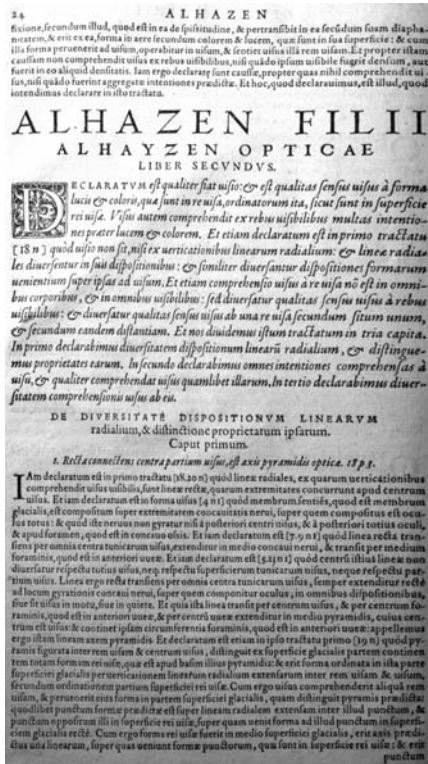 24 ALHAZEN
fixione, secundum illud, quod est in ea de spissitudine, & pertransibit in ea secūdùm suam diapha-
nitatem, & erit ex ea, forma in aere secundum colorem & lucem, quæ sunt in sua superficie: & cum
illa forma peruenerit ad uisum, operabitur in uisum, & sentiet uisus illã rem uisam. Et propter istam
caussam non comprehendit uisus ex rebus uisibilibus, nisi quãdo ipsum uisibile fuerit densum, aut
fuerit in eo aliquid densitatis. Iam ergo declaratę sunt caussæ, propter quas nihil comprehendit ui-
sus, nisi quãdo fuerint aggregatæ intentiones prædictæ. Et hoc, quod declarauimus, est illud, quod
intendimus declarare in isto tractatu.
ALHAZEN FILII
ALHAYZEN OPTICAE
LIBER SECVNDVS.
DECLARATVM est qualiter fiat uisio: & est qualitas sensus uisus à forma
lucis & coloris, quæ sunt in re uisa, ordinatorum ita, sicut sunt in superficie
rei uisæ. Visus autem comprehendit ex rebus uisibilibus multas intentio-
nes præter lucem & colorem. Et etiam declaratum est in primo tractatu
[18 n] quòd uisio non sit, nisi ex uerticationibus linearum radialium: & lineæ radia-
les diuersentur in suis dispositionibus: & similiter diuersantur dispositiones formarum
uenientium super ipsas ad uisum. Et etiam comprehensio uisus à re uisa nõ est in omni-
bus corporibus, & in omnibus uisibilibus: sed diuersatur qualitas sensus uisus à rebus
uisibilibus: & diuersatur qualitas sensus uisus ab una re uisa secundum situm unum,
& secundum eandem distantiam. Et nos diuidemus istum tractatum in tria capita.
In primo declarabimus diuersitatem dispositionum linearū radialium, & distingue-
mus proprietates earum. In secundo declarabimus omnes intentiones comprehensas à
uisu, & qualiter comprehendat uisus quamlibet illarum. In tertio declarabimus diuer-
sitatem comprehensionis uisus ab eis.
DE DIVERSITATE DISPOSITIONVM LINEARVM
radialium, & distinctione proprietatum ipsarum.
Caput primum.
1. Recta connectens centra partium uisus, est axis pyramidis opticæ. 18 p 3.
IAm declaratum est in primo tractatu [18.20 n] quòd lineæ radiales, ex quarum uerticationibus
comprehendit uisus uisibilia, sunt lineæ rectæ, quarum extremitates concurrunt apud centrum
uisus. Et iam declaratum est in forma uisus [4 n 1] quòd membrum sentiēs, quod est membrum
glacialis, est compositum super extremitatem concauitatis nerui, super quem compositus est ocu-
lus totus: & quòd iste neruus non gyratur nisi à posteriori centri uisus, & à posteriori totius oculi,
& apud foramen, quod est in concauo ossis. Et iam declaratum est [7.9 n 1] quòd linea rectā tran-
siens per omnia centra tunicarum uisus, extenditur in medio concaui nerui, & transit per medium
foraminis, quod est in anteriori uueæ. Et iam declaratum est [5.12 n 1] quòd centrū istius lineæ non
diuersatur respectu totius uisus, neq; respectu superficierum tunicarum uisus, neque respectu par-
tium uisus. Linea ergo recta transiens per omnia centra tunicarum uisus, semper extenditur rectè
ad locum gyrationis concaui nerui, super quem componitur oculus, in omnibus dispositionibus,
siue sit uisus in motu, siue in quiete. Et quia ista linea transit per centrum uisus, & per centrum fo-
raminis, quod est in anteriori uueæ, & per centrū uueæ extenditur in medio pyramidis, cuius cen-
trum est uisus: & continet ipsam circumferentia foraminis, quod est in anteriori uueæ: appellemus
ergo istam lineam axem pyramidis. Et declaratum est etiam in ipso tractatu primo [19 n] quòd py-
ramis figurata inter rem uisam & centrum uisus, distinguit ex superficie glacialis partem continen-
tem totam formam rei uisæ, quæ est apud basim illius pyramidis: & erit forma ordinata in ista parte
superficiei glacialis per uerticationem linearum radialium extensarum inter rem uisam & uisum,
secundum ordinationem partium superficiei rei uisæ. Cum ergo uisus comprehenderit aliquã rem
uisam, & peruenerit eius forma in partem superficiei glacialis, quam distinguit pyramis prædicta:
quodlibet punctum formæ prædictæ est super lineam radialem extensam inter illud punctum, &
punctum oppositum illi in superficie rei uisæ, super quam uenit forma ad illud punctum in superfi-
ciem glacialis rectè. Cum ergo forma rei uisæ fuerit in medio superficiei glacialis, erit axis prædi-
ctus una linearum, super quas ueniunt formæ punctorum, quæ sunt in superficie rei uisæ: & erit
punctum